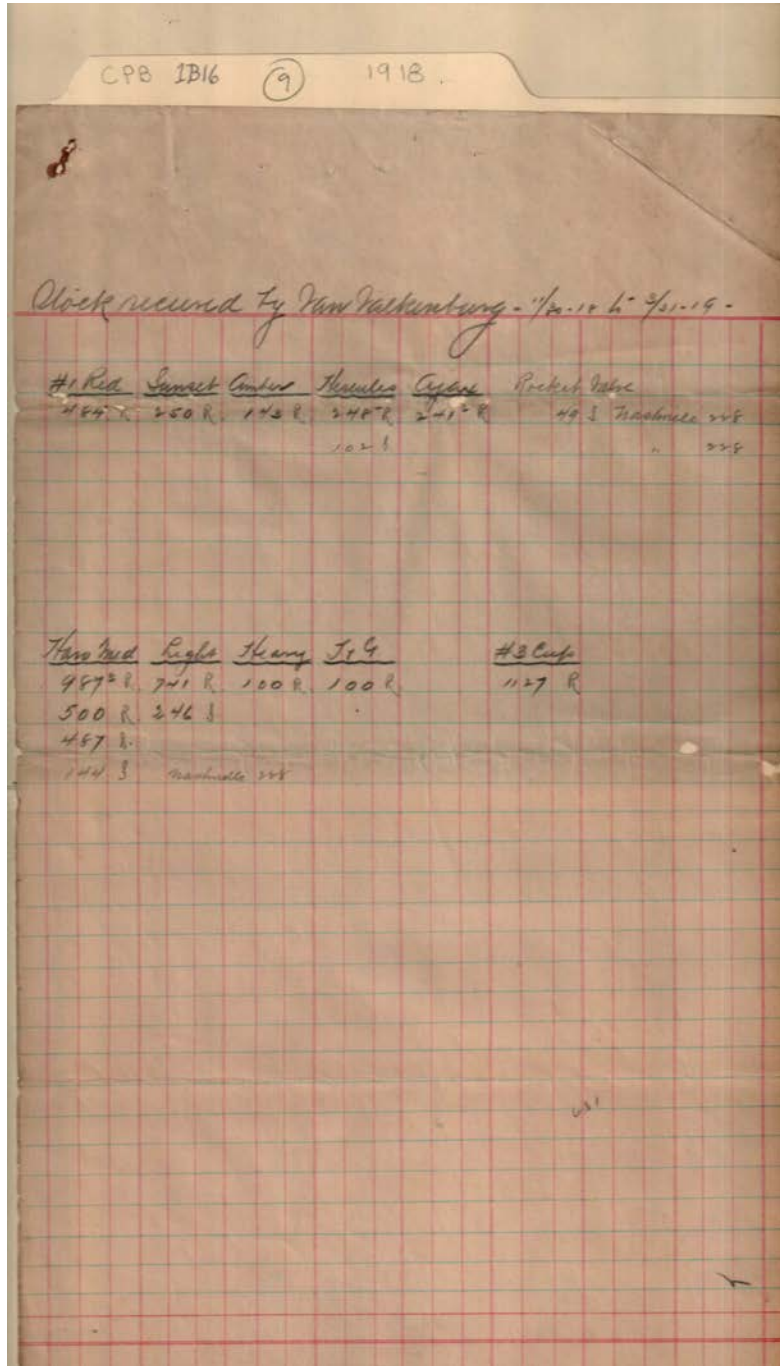 CPB 1B16 9 1918.
Stock received by Van Valkenburg - 11/30-18 to 3/31-19 -
#1 Red Sunset Amber Hercules Ajax Rocket Valve
485 R 250 R 143 R 248 R 241² R 49 S Nashville 228
102 S " 228
Light Heavy T&G #3 Cup
987² R 741 R 100 R 100 R 1127 R
500 R 246 S
487 S.
144 S Nashville 228